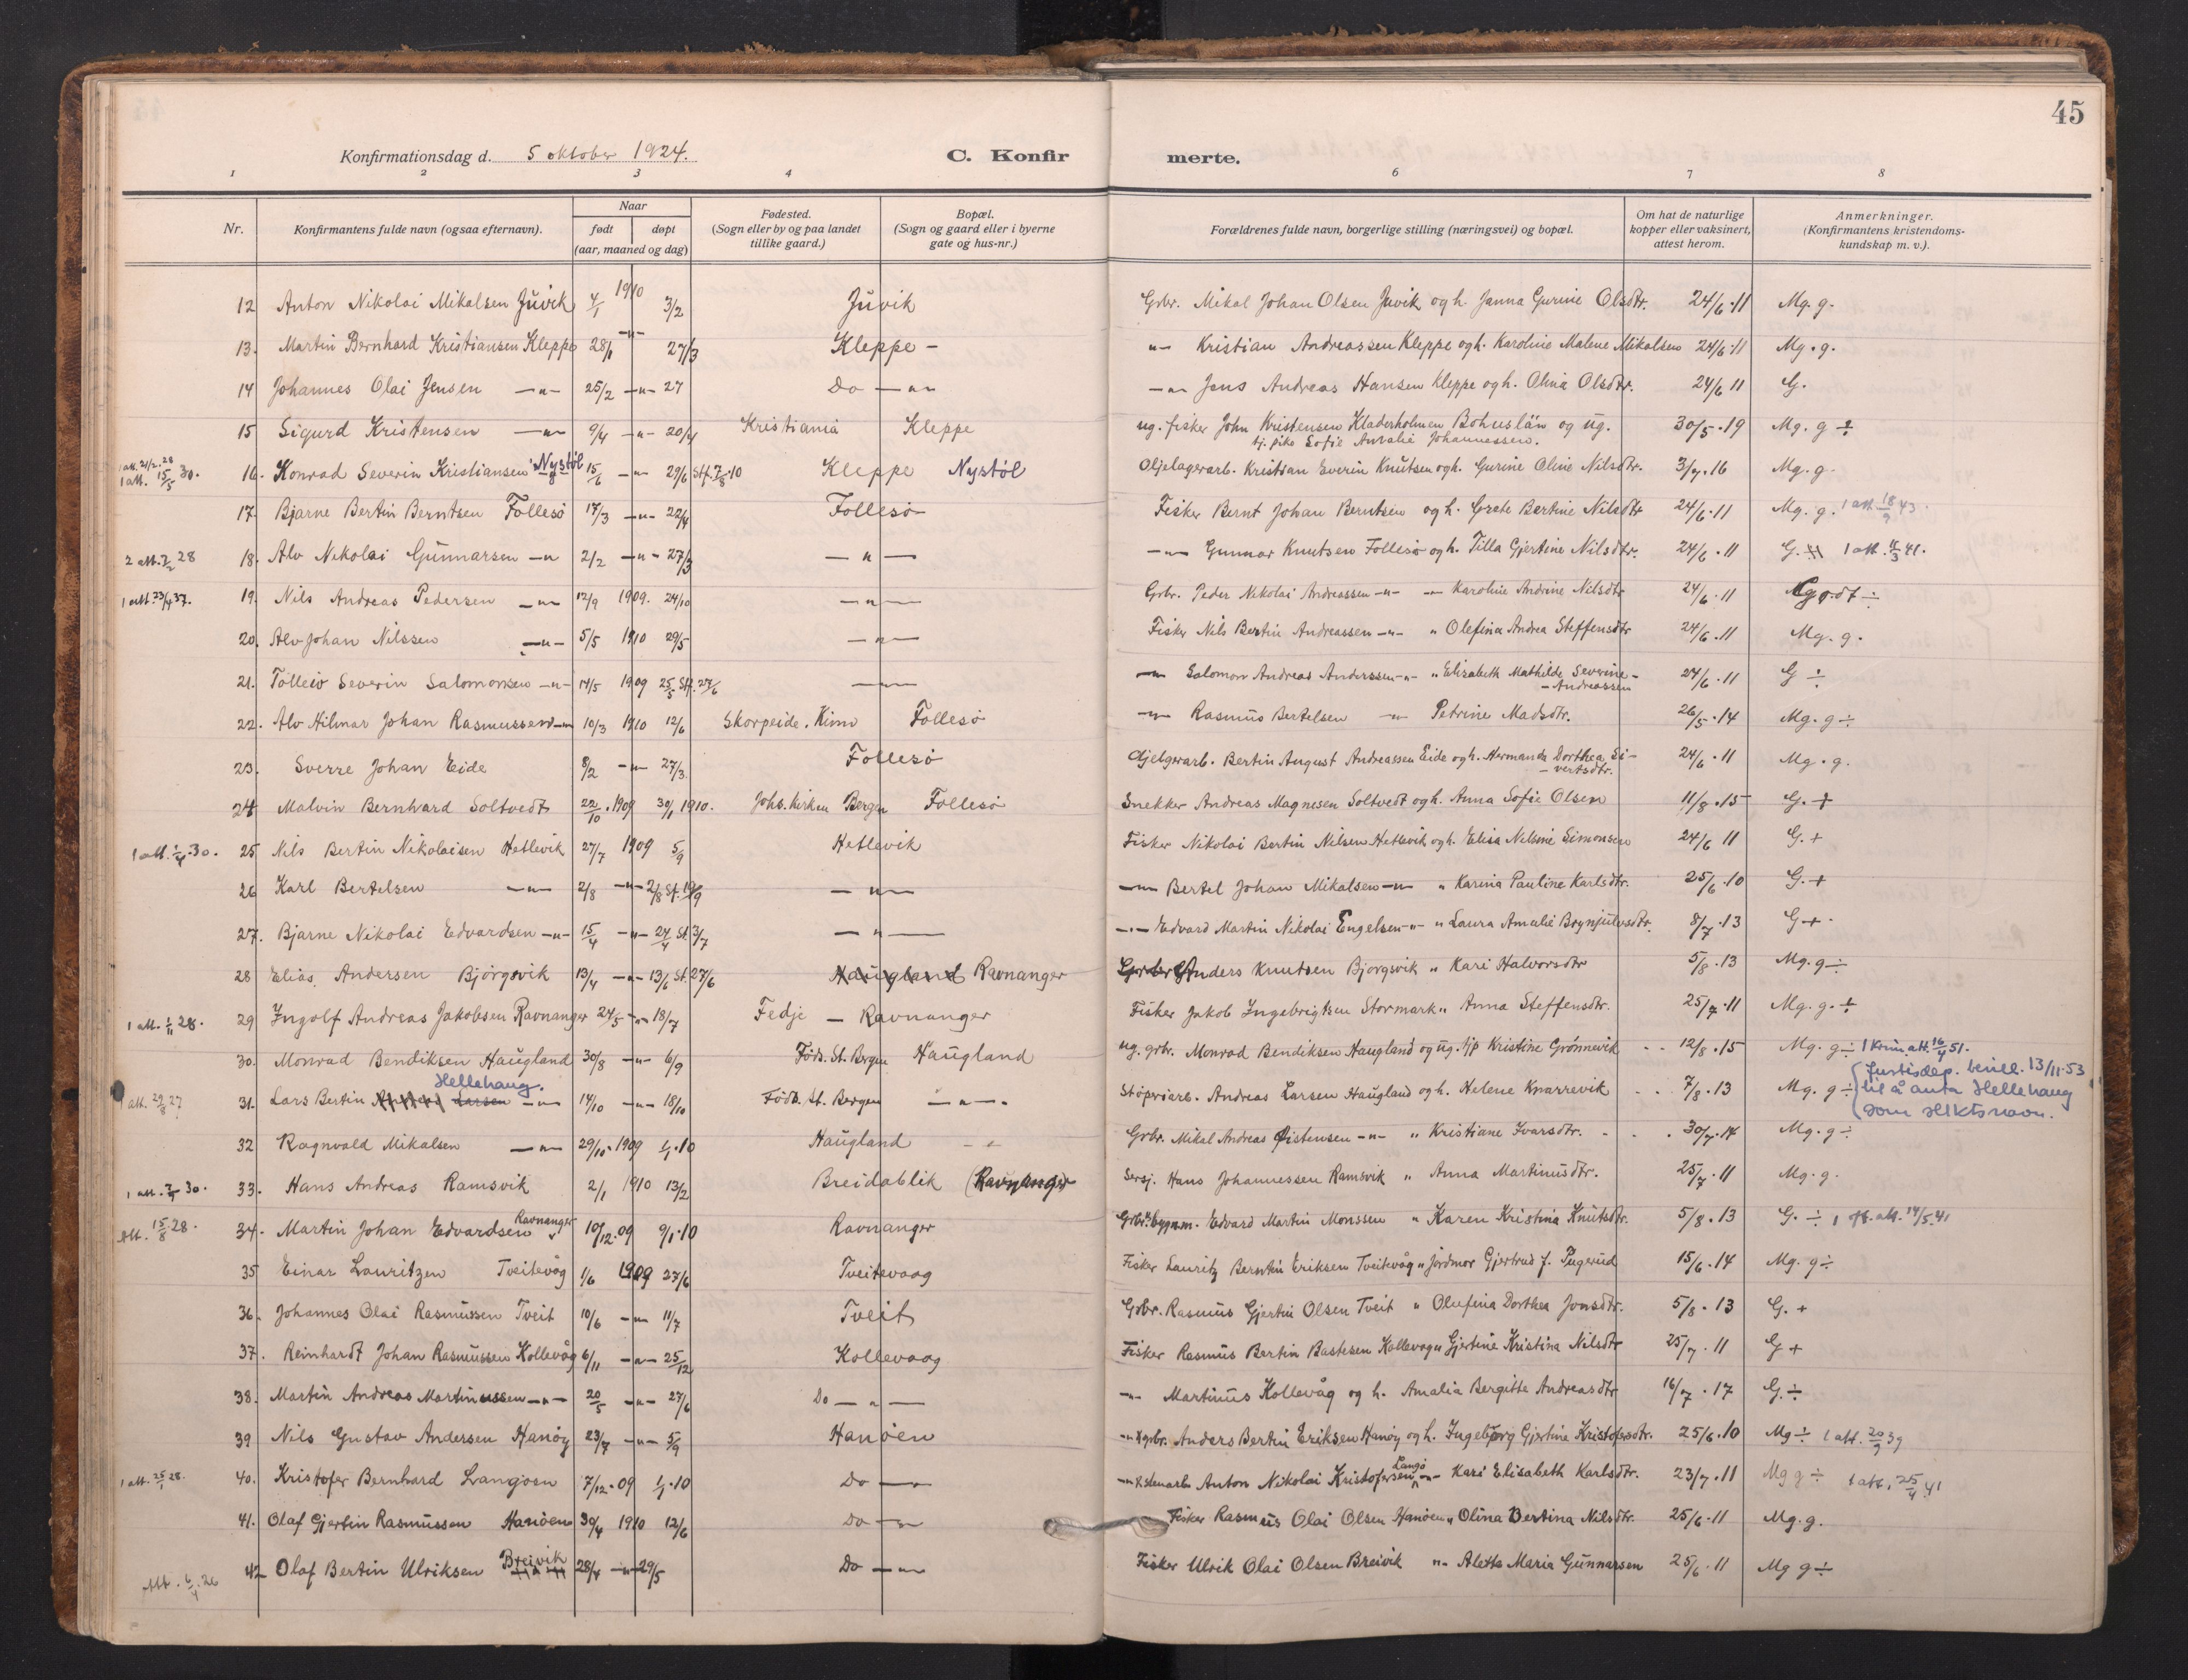 45
Konfirmationsdag d. 5 oktober 1924. C. Konfir merte.
1 2 3 4 6 7 8
Nr. Konfirmantens fulde navn (ogsaa efternavn). Naar født døpt (aar, maaned og dag) Fødested. (Sogn eller by og paa landet tillike gaard.) Bopæl. (Sogn og gaard eller i byerne gate og hus-nr.) Forældrenes fulde navn, borgerlige stilling (næringsvei) og bopæl. Om hat de naturlige kopper eller vaksinert, attest herom. Anmerkninger. (Konfirmantens kristendomskundskap m. v.).
12 Anton Nikolai Mikalsen Juvik 4/1 1910 3/2 Juvik Grbr. Mikal Johan Olsen Juvik og h. Janna Gurine Olsdtr. 24/6.11 Mg. g.
13. Martin Bernhard Kristiansen Kleppe 28/1 -"- 27/3 Kleppe - "- Kristian Andreassen Kleppe og h. Karoline Malene Mikalsen 24/6.11 Mg. g.
14 Johannes Olai Jensen -"- 25/2 -"- 27 Do -"- -"- Jens Andreas Hansen Kleppe og h. Olina Olsdtr. 24/6 11 G.
15 Sigurd Kristensen -"- 9/4 -"- 20/4 Kristiania Kleppe ug. fisker John Kristensen Kladerholmen Bohuslän og ug.
tj. pike Sofie Amalie Johannessen. 30/5.19 Mg. g ÷
1 att. 21/2.28
1 att. 15/5 30. 16. Konrad Severin Kristiansen Nystøl 15/6 -"- 29/6 Stf. 7/8.10 Kleppe Nystøl Oljelagerarb. Kristian Everin Knutsen og h. Gurine Oline Nilsdtr. 3/7.16 Mg. g.
17. Bjarne Bertin Berntsen Follesø 17/3 -"- 22/4 Follesø Fisker Bernt Johan Berntsen og h. Grete Bertine Nilsdtr 24/6.11 Mg. g. 1 att. 18/9 43.
2 att. 7/2 28 18. Alv Nikolai Gunnarsen -"- 2/2 -"- 27/3 -"- -"- Gunnar Knutsen Follesø og h. Tilla Gjertine Nilsdtr. 24/6.11 G. 1 att. 11/3 41.
1 att. 23/4 37. 19. Nils Andreas Pedersen -"- 12/9 1909. 24/10 -"- Grbr. Peder Nikolai Andreassen -"- -"- Karoline Andrine Nilsdtr 24/6.11 Mg. ÷
20. Alv Johan Nilssen -"- 5/5 1910 29/5 -"- Fisker Nils Bertin Andreassen -"- " Olefina Andrea Steffensdtr 24/6.11 Mg. g.
21. Tolleiv Severin Salomonsen -"- 14/5 1909 25/5 Stf. 27/6 -"- -"- Salomon Andreas Anderssen -"- " Elisabeth Mathilde Severine-
- Andreassen 24/6.11 G ÷
22. Alv Hilmar Johan Rasmussen -"- 10/3 1910 12/6 Skorpeide. Kinn Follesø -"- Rasmus Bertelsen -"- Petrine Madsdtr. 26/5.14 Mg. g ÷
23. Sverre Johan Eide 8/2 -"- 27/3. Follesø Oljelgerarb. Bertin August Andreassen Eide og h. Hermanda Dorthea Si-
- vertsdtr. 24/6.11 Mg. g.
24 Malvin Bernhard Soltvedt 22/10.1909 30/1 1910. Johs. kirken Bergen Follesø Snekker Andreas Magnesen Soltvedt og h. Anna Sofie Olsen 11/8.15 G. +
1 att. 1/4.30. 25 Nils Bertin Nikolaisen Hetlevik 27/7 1909 5/9 Hetlevik Fisker Nikolai Bertin Nilsen Hetlevik og h. Elisa Nelsine Simonsen 24/6 11 G. +
26 Karl Bertelsen -"- 2/8 -"- 2/8 St. 19/9 -"- -"- Bertel Johan Mikalsen -"- " Karina Pauline Karlsdtr. 25/6.10 G. +
27. Bjarne Nikolai Edvardsen -"- 15/4 -"- 24/4 St. 3/7 -"- -"- Edvard Martin Nikolai Engelsen -"- " Laura Amalie Brynjulvsdtr. 8/7.13 G +.
28 Elias Andersen Bjørgsvik 13/4 -"- 13/6 St. 27/6 Haugland Ravnanger Anders Knutsen Bjorgsvik " Kari Halvorsdtr 5/8.13 Mg. g ÷
1 att. 1/11 28. 29 Ingolf Andreas Jakobsen Ravnanger 24/5 -"- 18/7 Fedje - Ravnanger Fisker Jakob Ingebrigtsen Stormark " Anna Steffensdtr. 25/7.11 Mg. g. ÷
30. Monrad Bendiksen Haugland 30/8 -"- 6/9 Føds. St. Bergen Haugland ug. grbr. Monrad Bendiksen Haugland og ug. tjp Kristine Grønnevik 12/8.15 Mg. g ÷ 1 Krim. att. 16/4 51.
Hellehaug.
1 att. 29/8 27 31. Lars Bertin Larsen -"- 14/10 -"- 18/10 Føds. St. Bergen -"- Støperiarb. Andreas Larsen Haugland og h. Helene Knarrevik 7/8.13 Mg. g ÷ Justisdep. bevill. 13/11-53
til å anta Hellehaug
som slektsnavn.
32 Ragnvald Mikalsen -"- 29/10.1909 1/1.10 Haugland -"- Grbr. Mikal Andreas Øistensen -"- " Kristiane Ivarsdtr. 30/7.14 Mg. g ÷
1 att. 7/5 30. 33. Hans Andreas Ramsvik 2/1 1910 13/2 Breidablik (Ravnanger Sersj. Hans Johannessen Ramsvik " Anna Martinusdtr. 25/7.11 Mg. g.
Att. 15/8 28. 34. Martin Johan Edvardsen Ravnanger 10/12.09 9/1.10 Ravnanger Grbr. bygnm. Edvard Martin Monssen " Karen Kristina Knutsdtr. 5/8.13 G. ÷ 1 att. 14/5.41
35 Einar Lauritzen Tveitevåg 1/6 1909 27/6 Tveitevaag Fisker Lauritz Berntin Eriksen Tveitevåg " Jordmor Gjertrud f. Pugerud 15/6.14 Mg. g ÷
36. Johannes Olai Rasmussen Tveit 10/6 -"- 11/7 Tveit Grbr. Rasmus Gjertin Olsen Tveit " Olufina Dorthea Jonsdtr. 5/8.13 G. +
37. Reinhardt Johan Rasmussen Kollevåg 6/11 -"- 25/12 Kollevaag Fisker Rasmus Bertin Bastesen Kollevag " Gjertine Kristina Nilsdtr 25/7.11 G +
38. Martin Andreas Martinussen -"- 20/5 -"- 27/6 Do -"- -"- Martinus Kollevåg og h. Amalia Bergitte Andreasdtr 16/7.17 G. ÷
39 Nils Gustav Andersen Hanøy 23/7 -"- 5/9 Hanøen -"- & grbr. Anders Bertin Eriksen Hanøy og h. Ingeborg Gjertine Kristofersdtr. 25/6.10 Mg ÷ 1 att. 20/9 39
1 att. 25/1 28. 40. Kristofer Bernhard Langøen 7/12.09 1/1.10 Do -"- Anton Nikolai Kristofersen Langø -"- Kari Elisabeth Karlsdtr. 23/7.11 Mg g ÷ 1 att. 25/4 41
41. Olaf Gjertin Rasmussen Hanøen 30/4 1910 12/6 Do -"- Fisker Rasmus Olai Olsen Hanøen " Olina Bertina Nilsdtr. 25/6.11 Mg. g.
Att. 6/4.26 42 Olaf Bertin Ulriksen Breivik 28/4 -"- 29/5 Do -"- Fisker Ulrik Olai Olsen Breivik "- Aletta Maria Gunnarsen 25/6.11 Mg g ÷